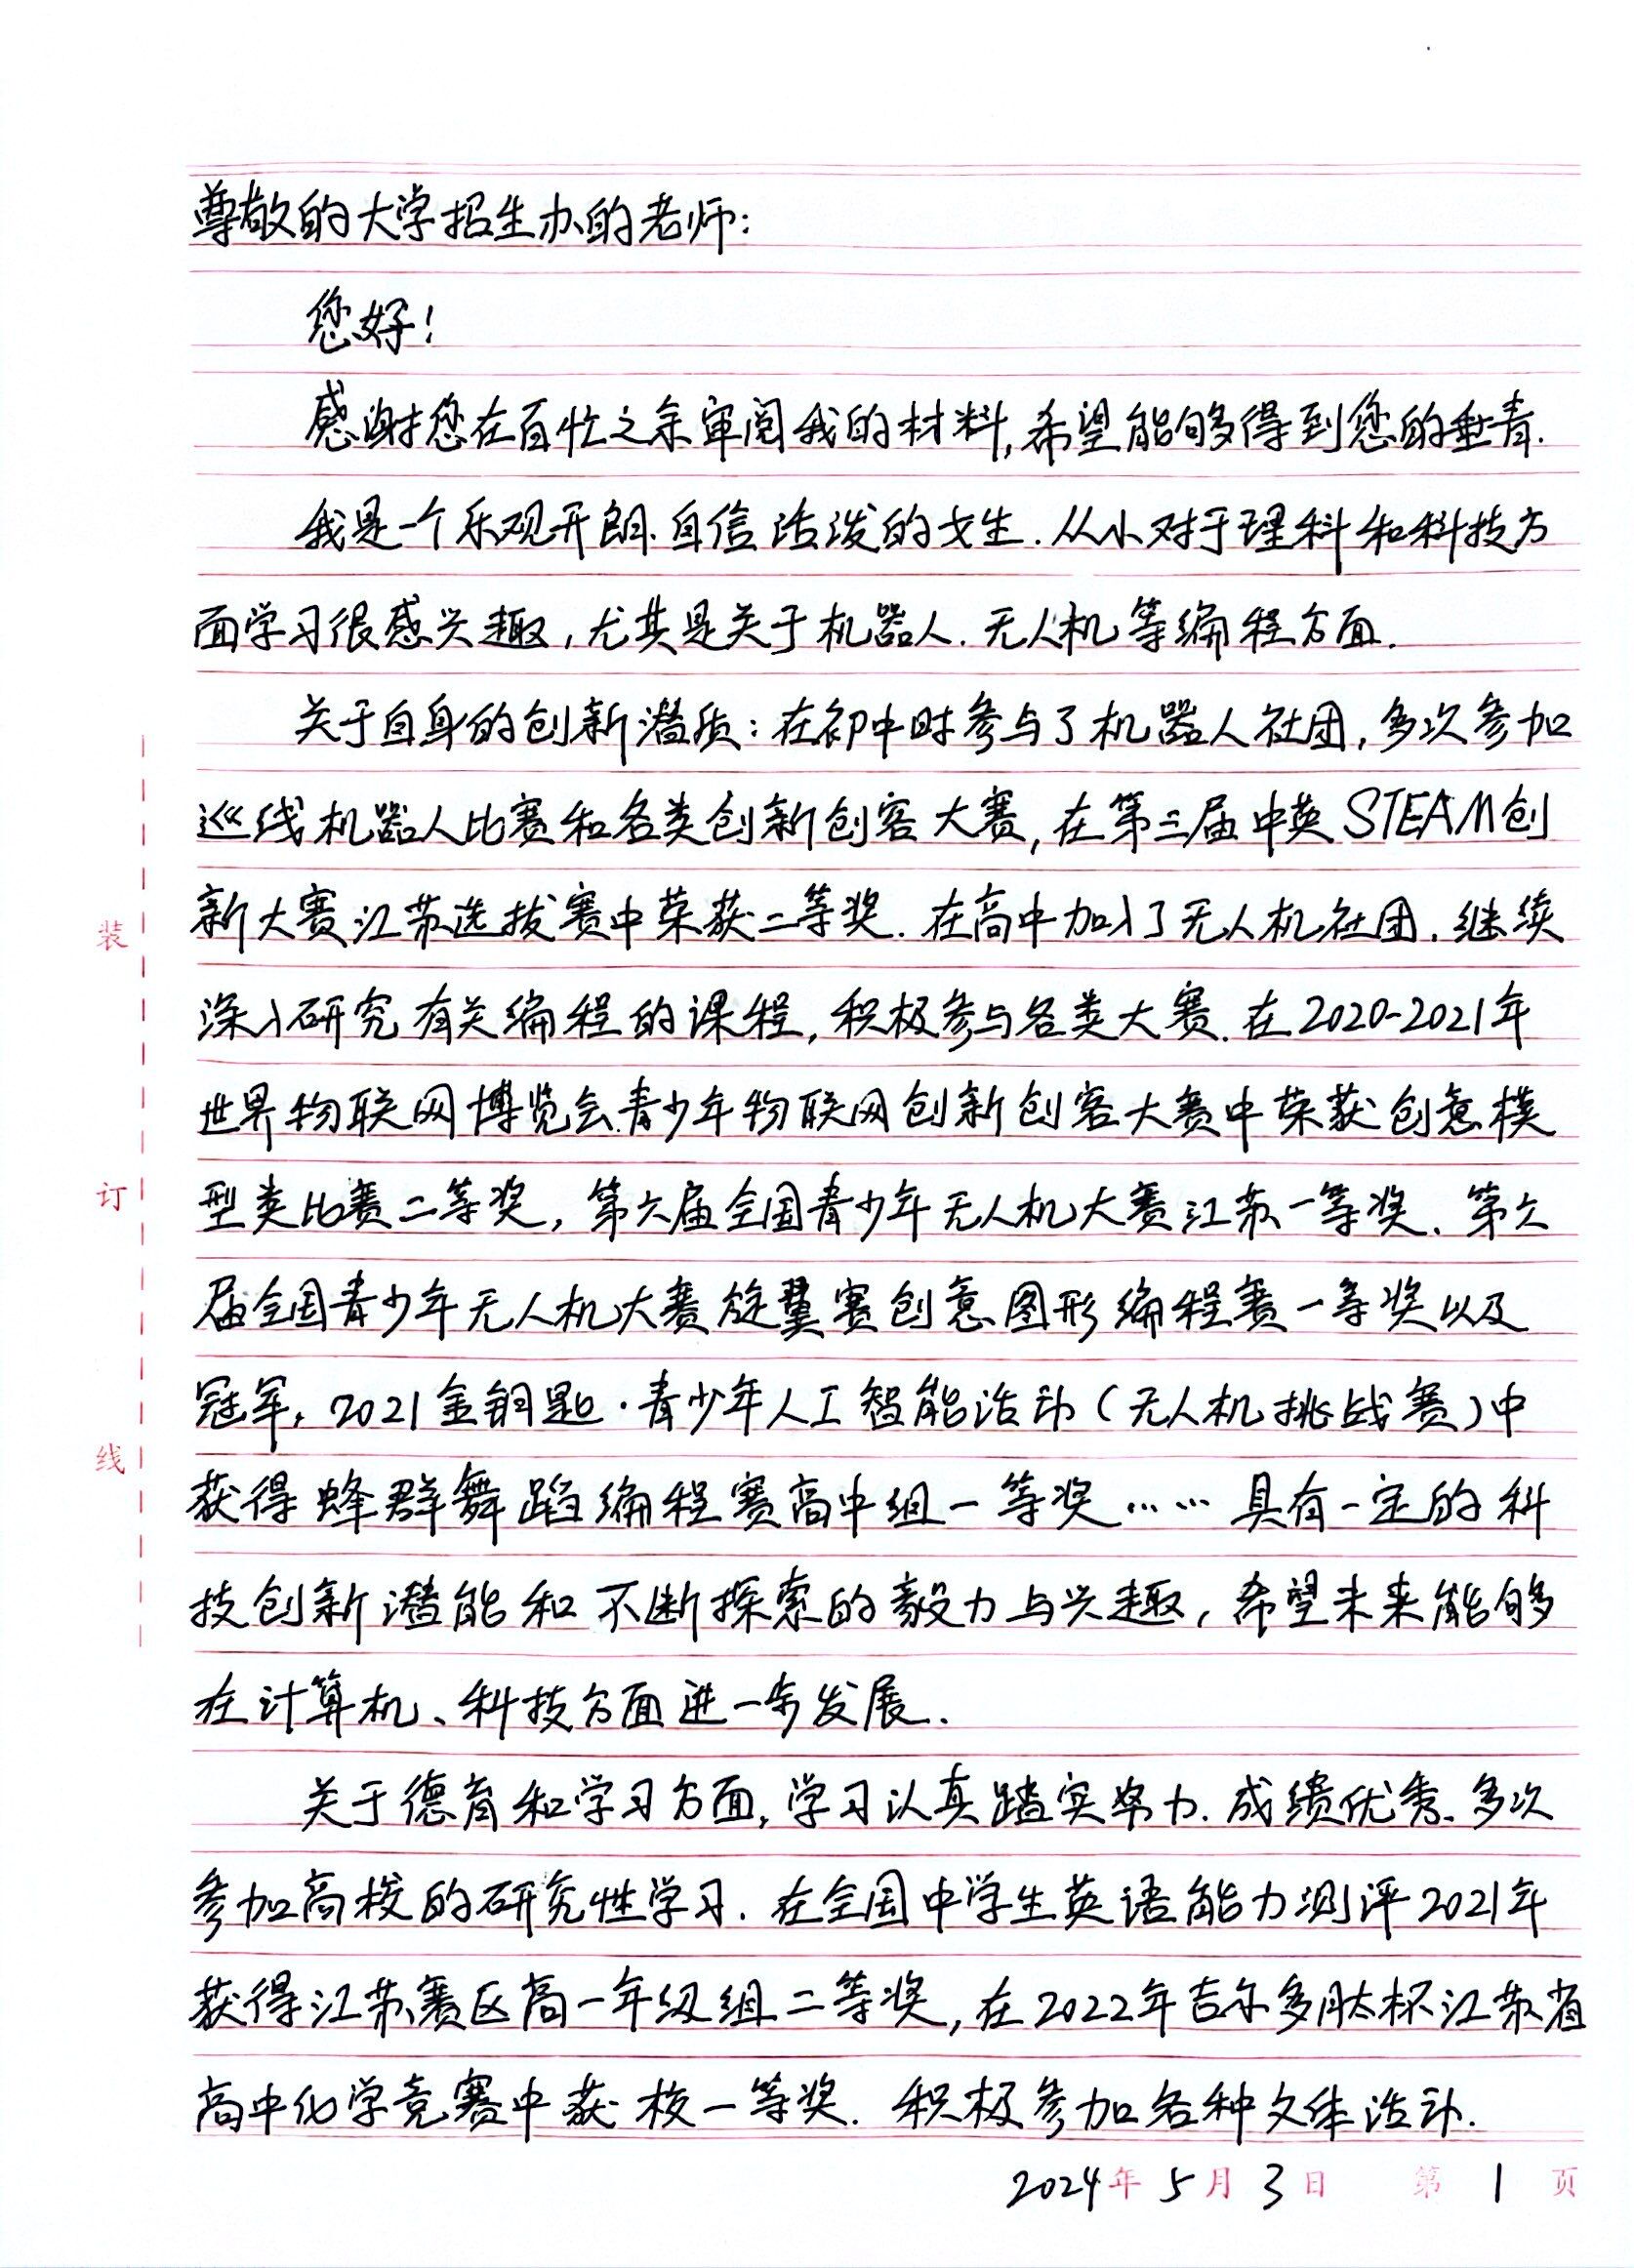 尊敬的大学招生办的老师:
您好!
感谢您在百忙之余审阅我的材料,希望能够得到您的垂青.
我是一个乐观开朗.自信活泼的女生.从小对于理科和科技方
面学习很感兴趣,尤其是关于机器人.无人机等编程方面.
关于自身的创新潜质:在初中时参与了机器人社团,多次参加
巡线机器人比赛和各类创新创客大赛,在第三届中英STEAM创
新大赛江苏选拔赛中荣获二等奖.在高中加入了无人机社团.继续
深入研究有关编程的课程,积极参与各类大赛.在2020-2021年
世界物联网博览会青少年物联网创新创客大赛中荣获创意模
型类比赛二等奖,第六届全国青少年无人机大赛江苏一等奖、第六
届全国青少年无人机大赛旋翼赛创意图形编程赛一等奖以及
冠军,2021金钥匙·青少年人工智能活动(无人机挑战赛)中
获得蜂群舞蹈编程赛高中组一等奖……具有一定的科
技创新潜能和不断探索的毅力与兴趣,希望未来能够
在计算机、科技方面进一步发展.
关于德育和学习方面,学习认真踏实努力.成绩优秀.多次
参加高校的研究性学习.在全国中学生英语能力测评2021年
获得江苏赛区高一年级组二等奖,在2022年吉尔多肽杯江苏省
高中化学竞赛中获校一等奖.积极参加各种文体活动.
2024年5月3日 第1页
装
订
线